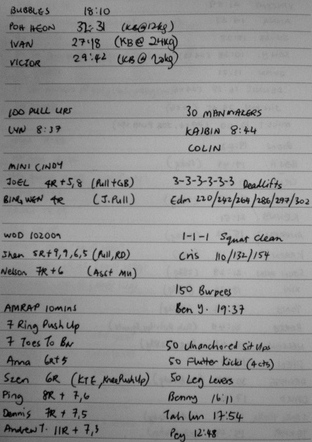 BUBBLES 18:10
POH HEON 31:31 (KB@12kg)
IVAN 27:18 (KB@24kg)
VICTOR 29:42 (KB@12kg)
100 PULL UPS
LYN 8:37
30 MANMAKERS
KAIBIN 8:44
COLIN
MINI CINDY
JOEL 4R+5,8 (Pull+GB)
BING WEN 4R (J.Pull)
3-3-3-3-3-3 Deadlifts
Edm 220/242/264/286/297/302
WOD 102009
Shan 5R+9,9,6,5 (Pull,RD)
Nelson 7R+6 (Asst MU)
1-1-1 Squat Clean
Cris 110/132/154
150 Burpees
Ben Y. 19:37
AMRAP 10mins
7 Ring Push Up
7 Toes To Bar
Anna 6R+5
Szen 6R (KTE, Knee Push Up)
Ping 8R + 7,6
Dennis 7R + 7,5
Andrew T. 11R + 7,3
50 Unanchored Sit Ups
50 Flutter Kicks (4cts)
50 Leg Levers
Benny 16:11
Tah Lun 17:54
Pey 12:48